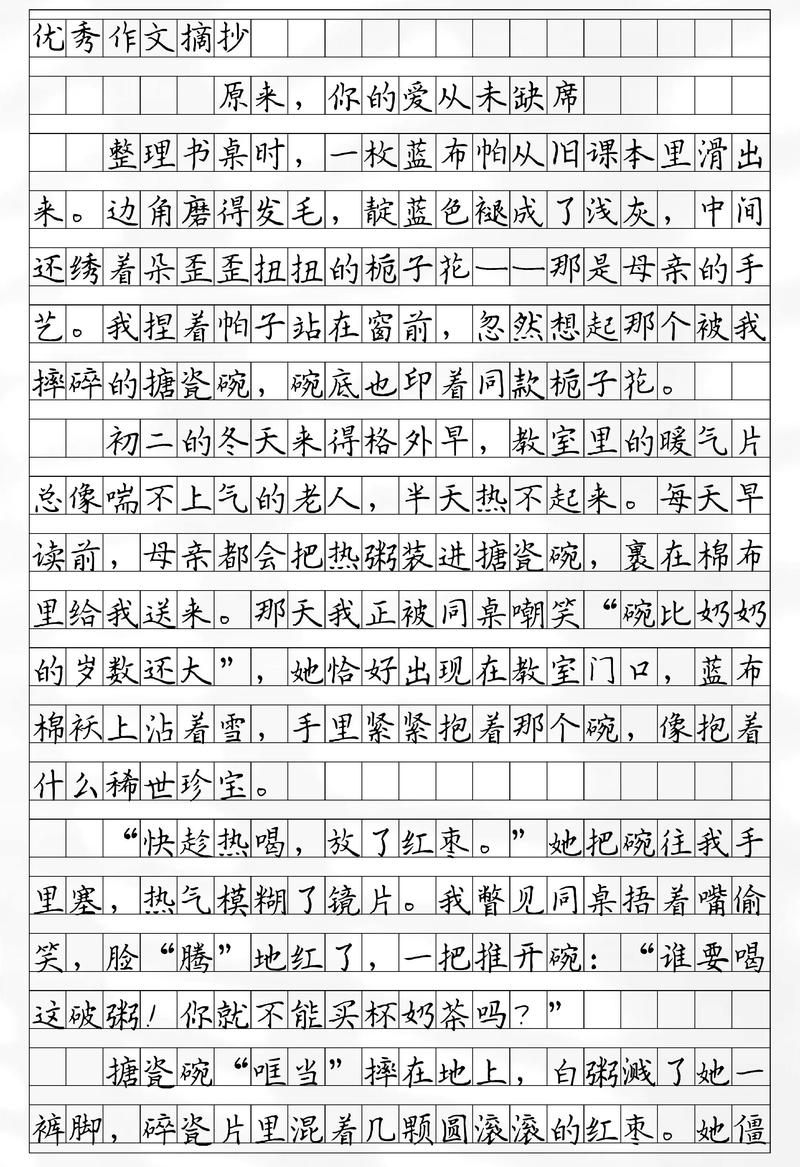 优秀作文摘抄
原来，你的爱从未缺席
整理书桌时，一枚蓝布帕从旧课本里滑出
来。边角磨得发毛，靛蓝色褪成了浅灰，中间
还绣着朵歪歪扭扭的栀子花——那是母亲的手
艺。我捏着帕子站在窗前，忽然想起那个被我
摔碎的搪瓷碗，碗底也印着同款栀子花。
初二的冬天来得格外早，教室里的暖气片
总像喘不上气的老人，半天热不起来。每天早
读前，母亲都会把热粥装进搪瓷碗，裹在棉布
里给我送来。那天我正被同桌嘲笑“碗比奶奶
的岁数还大”，她恰好出现在教室门口，蓝布
棉袄上沾着雪，手里紧紧抱着那个碗，像抱着
什么稀世珍宝。
“快趁热喝，放了红枣。”她把碗往我手
里塞，热气模糊了镜片。我瞥见同桌捂着嘴偷
笑，脸“腾”地红了，一把推开碗：“谁要喝
这破粥！你就不能买杯奶茶吗？”
搪瓷碗“哐当”摔在地上，白粥溅了她一
裤脚，碎瓷片里混着几颗圆滚滚的红枣。她僵